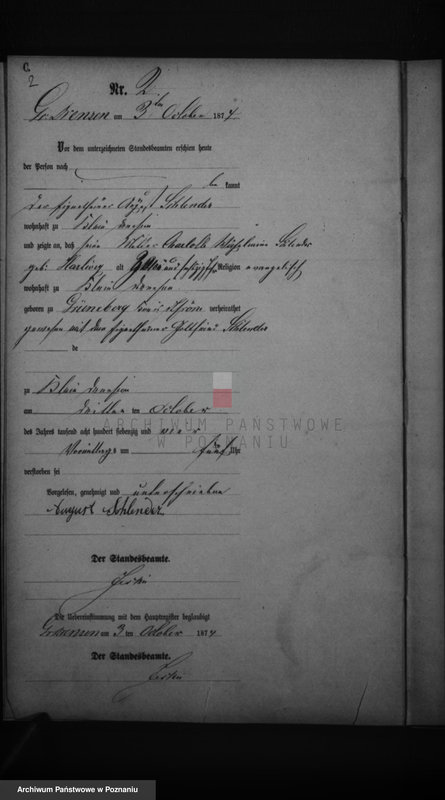 C.
2
Nr. 2.
Gr. Drensen am 3ten October 1874
Vor dem unterzeichneten Standesbeamten erschien heute
der Person nach
kannt
Der Eigenthümer August Schlender
wohnhaft zu Klein Drensen
und zeigte an, daß seine Mutter Charlotte Wilhelmine Schlender
geb: alt Religion evangelisch
wohnhaft zu Klein Drensen
geboren zu Grüneberg verheirathet
gewesen mit dem Eigenthümer Gottfried Schlender
de
zu Klein Drensen
am dritten ten October
des Jahres tausend acht hundert siebenzig und vier
Vormittags um fünf Uhr
verstorben sei
Vorgelesen, genehmigt und unterschrieben
August Schlender
Der Standesbeamte.
Die Uebereinstimmung mit dem Hauptregister beglaubigt
Gr. Drensen am 3 ten October 1874
Der Standesbeamte.
ARCHIWUM PAŃSTWOWE
W POZNANIU
Archiwum Państwowe w Poznaniu